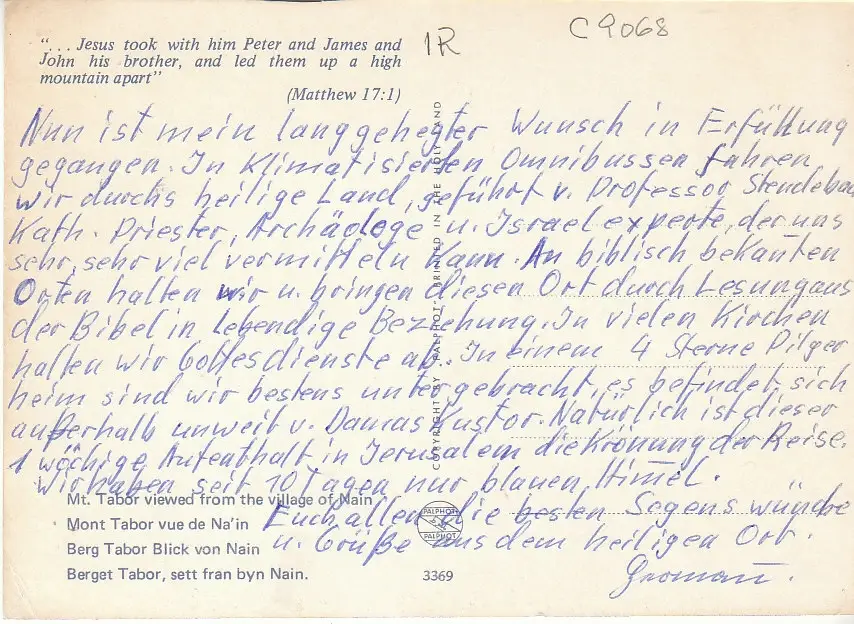 C9068
1R
“... Jesus took with him Peter and James and
John his brother, and led them up a high
mountain apart”
(Matthew 17:1)
Nun ist mein langgehegter Wunsch in Erfüllung
gegangen. In Klimatisierten Omnibussen fahren
wir durchs heilige Land, geführt v. Professor
Kath. Priester, Archäologe u. Israelexperte, der uns
sehr, sehr viel vermitteln kann. An biblisch bekannten
Orten halten wir u. bringen diesen Ort durch Lesung aus
der Bibel in Lebendige Beziehung. In vielen Kirchen
halten wir Gottesdienste ab. In einem 4 Sterne Pilger
heim sind wir bestens untergebracht, es befindet sich
außerhalb unweit v. Damaskustor. Natürlich ist dieser
1 wöchige Aufenthalt in Jerusalem die Krönung der Reise.
Wir haben seit 10 Tagen nur blauen Himel.
Euch allen die besten Segens wünche
u. Grüße aus dem heiligen Ort.
COPYRIGHT BY PALPHOT PRINTED IN THE HOLY LAND
Mt. Tabor viewed from the village of Nain
Mont Tabor vue de Na'in
Berg Tabor Blick von Nain
Berget Tabor, sett fran byn Nain.
PALPHOT
PALPHOT
3369